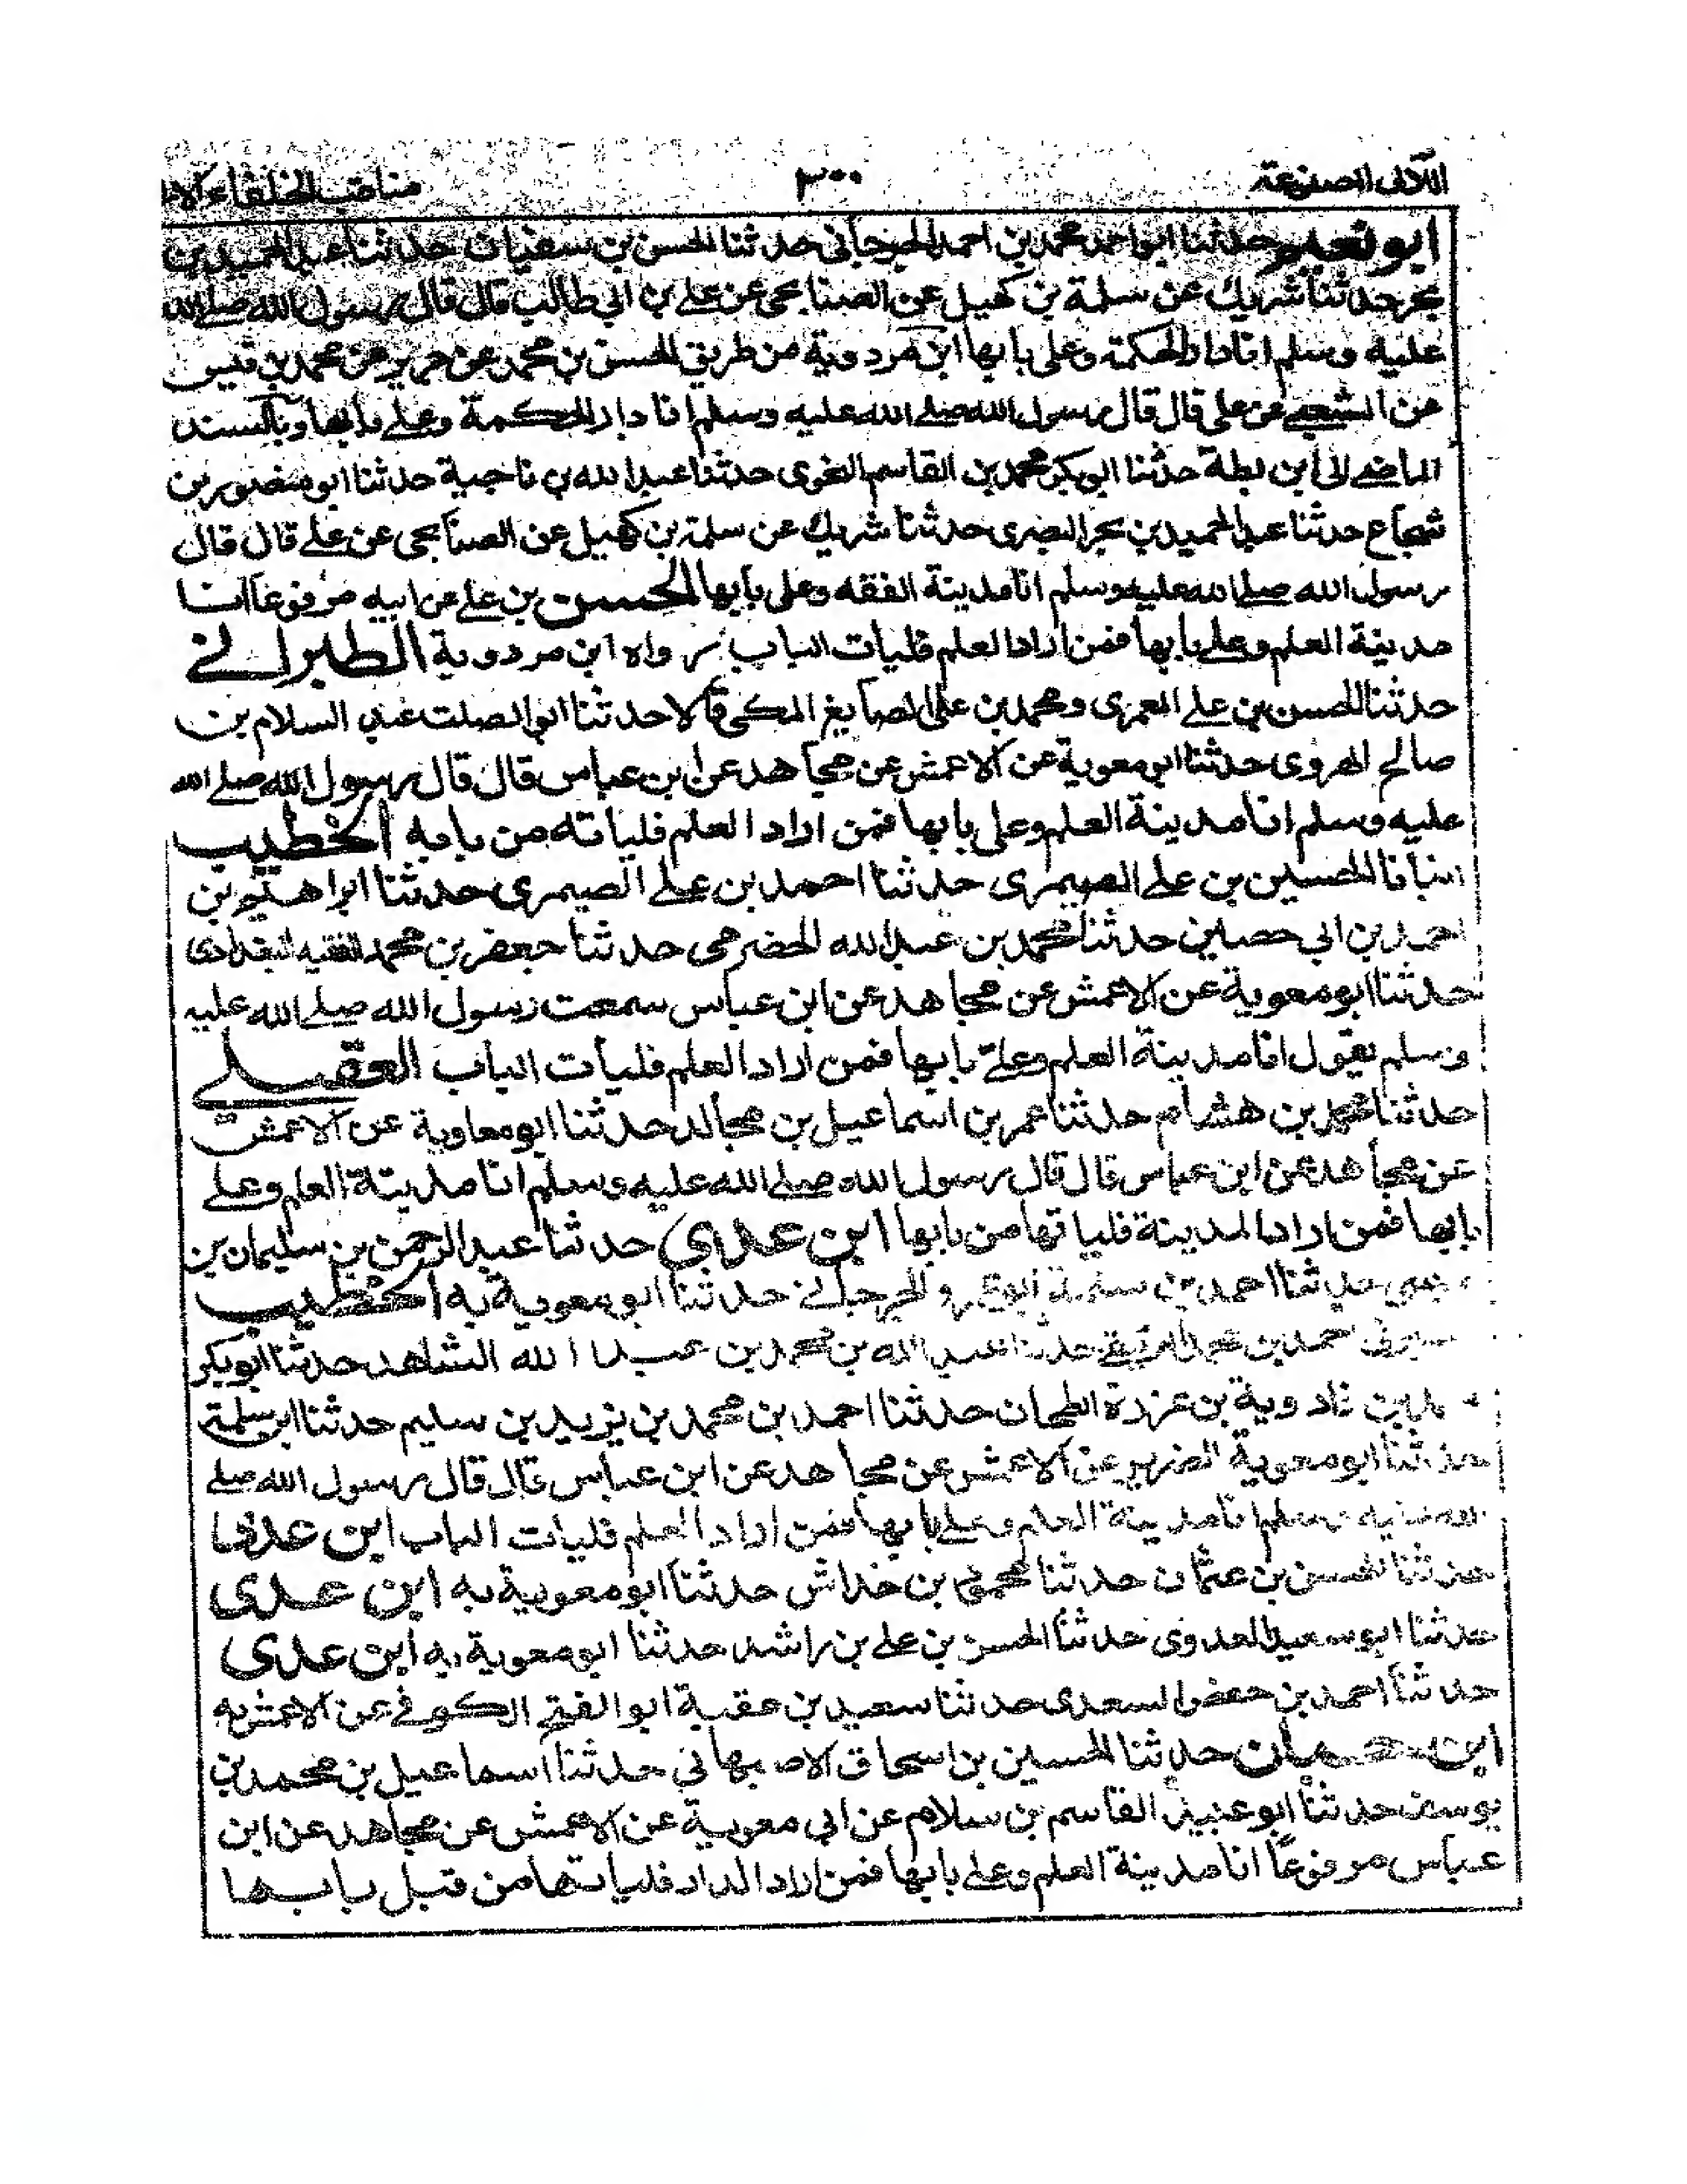 اللآلى المصنوعة ٣٠٠ مناقب الخلفاء الا
ابو نعيم حدثنا ابو احمد محمد بن احمد الجرجانى حدثنا الحسن بن سفيان حدثنا عبد الحميد بن
بحر حدثنا شريك عن سلمة بن كهيل عن الصنابحى عن على بن ابي طالب قال قال رسول الله صلے الله
عليه وسلم انا دار الحكمة وعلى بابها ابن مردوية من طريق الحسن بن محمد عن جرير عن محمد بن قيس
عن الشعبے عن على قال قال رسول الله صلے الله عليه وسلم انا دار الحكمة وعلے بابها وبالسند
الماضے الى ابن بطة حدثنا ابو بكر محمد بن القاسم النحوى حدثنا عبد الله بن ناجية حدثنا ابو منصور بن
شجاع حدثنا عبد الحميد بن بحر البصرى حدثنا شريك عن سلمة بن كهيل عن الصنابحى عن علے قال قال
رسول الله صلے الله عليه وسلم انا مدينة الفقه وعلى بابها الحسن بن علے عن ابيه مرفوعا انا
مدينة العلم وعلے بابها فمن اراد العلم فليات الباب رواه ابن مردوية الطبرانے
حدثنا الحسن بن علے المعمرى ومحمد بن على الصايغ المكى قالا حدثنا ابو الصلت عبد السلام بن
صالح الهروى حدثنا ابو معوية عن الاعمش عن مجاهد عن ابن عباس قال قال رسول الله صلے الله
عليه وسلم انا مدينة العلم وعلى بابها فمن اراد العلم فلياته من بابه الخطيب
انبانا الحسين بن علے الصيمرى حدثنا احمد بن علے الصيمرى حدثنا ابراهيم بن
احمد بن ابي حصين حدثنا محمد بن عبد الله الحضرمى حدثنا جعفر بن محمد الفقيه البغدادى
حدثنا ابو معوية عن الاعمش عن مجاهد عن ابن عباس سمعت رسول الله صلے الله عليه
وسلم يقول انا مدينة العلم وعلے بابها فمن اراد العلم فليأت الباب العقيلے
حدثنا محمد بن هشام حدثنا عمر بن اسماعيل بن مجالد حدثنا ابو معاوية عن الاعمش
عن مجاهد عن ابن عباس قال قال رسول الله صلے الله عليه وسلم انا مدينة العلم وعلے
بابها فمن اراد المدينة فلياتها من بابها ابن عدي حدثنا عبد الرحمن بن سليمان بن
حدثنا احمد بن سلمة ابو عمرو الجرجانے حدثنا ابو معوية به الخطيب
احمد بن محمد حدثنا عبد الله بن محمد بن عبد الله الشاهد حدثنا ابو بكر
بن فاد وية بن عزرة الطحان حدثنا احمد بن محمد بن يزيد بن سليم حدثنا ابن سلمة
حدثنا ابو معوية الضرير عن الاعمش عن مجاهد عن ابن عباس قال قال رسول الله صلے
الله عليه وسلم انا مدينة العلم وعلے بابها فمن اراد العلم فليات الباب ابن عدى
حدثنا الحسن بن عثمان حدثنا محمود بن خداش حدثنا ابو معوية به ابن عدى
حدثنا ابو سعيد العدوى حدثنا الحسن بن على بن راشد حدثنا ابو معوية به ابن عدى
حدثنا احمد بن حفص السعدى حدثنا سعيد بن عقبة ابو الفتح الكوفے عن الاعمش به
ابن حبان حدثنا الحسين بن اسحاق الاصبهاني حدثنا اسماعيل بن محمد بن
يوسف حدثنا ابو عبيد القاسم بن سلام عن ابي معوية عن الاعمش عن مجاهد عن ابن
عباس مرفوعا انا مدينة العلم وعلے بابها فمن اراد الدار فلياتها من قبل بابها